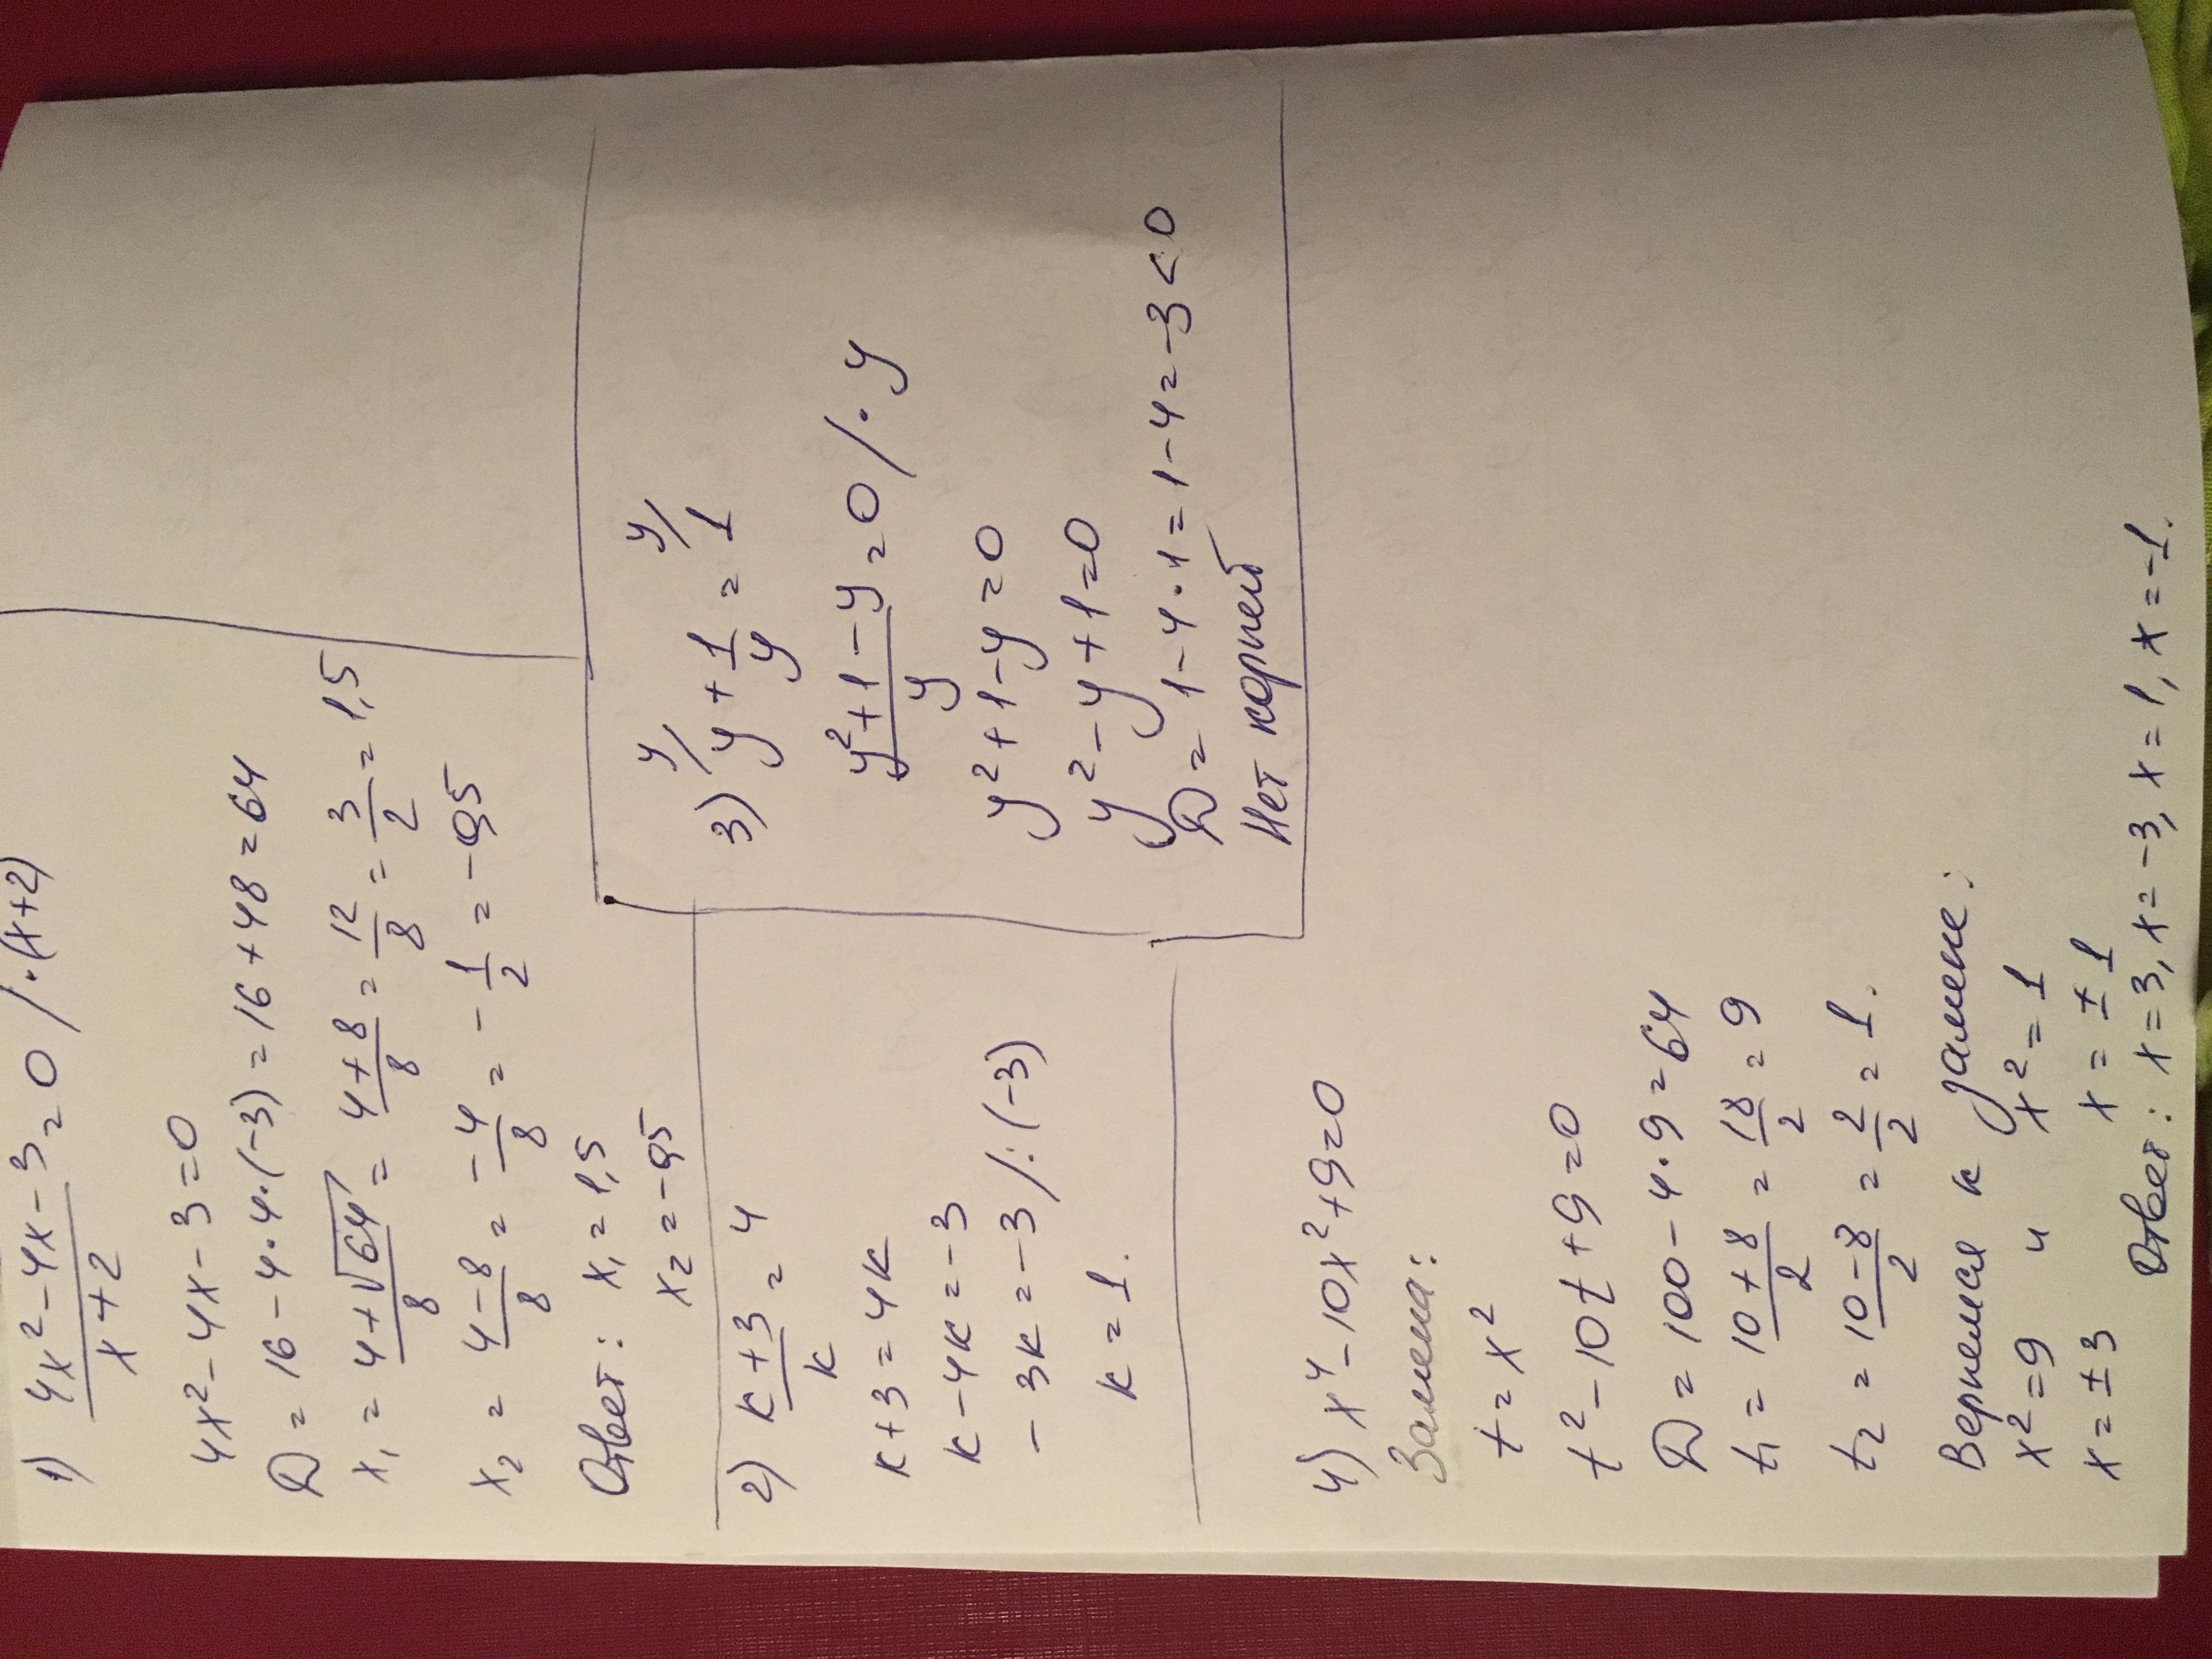 1) (4x² - 4x - 3)/(x + 2) = 0 / · (x+2)
4x² - 4x - 3 = 0
D = 16 - 4·4·(-3) = 16 + 48 = 64
x₁ = (4 + √64)/8 = (4 + 8)/8 = 12/8 = 3/2 = 1,5
x₂ = (4 - 8)/8 = -4/8 = -1/2 = -0,5
Ответ: x₁ = 1,5
x₂ = -0,5
2) (к + 3)/к = 4
к + 3 = 4к
к - 4к = -3
-3к = -3 / : (-3)
к = 1.
3) y/ y + 1/y = y/ 1
(y² + 1 - y)/y = 0 / · y
y² + 1 - y = 0
y² - y + 1 = 0
D = 1 - 4·1 = 1 - 4 = -3 < 0
Нет корней
4) x⁴ - 10x² + 9 = 0
Замена:
t = x²
t² - 10t + 9 = 0
D = 100 - 4·9 = 64
t₁ = (10 + 8)/2 = 18/2 = 9
t₂ = (10 - 8)/2 = 2/2 = 1.
Вернемся к замене:
x² = 9 и x² = 1
x = ±3 x = ±1
Ответ: x = 3, x = -3, x = 1, x = -1.